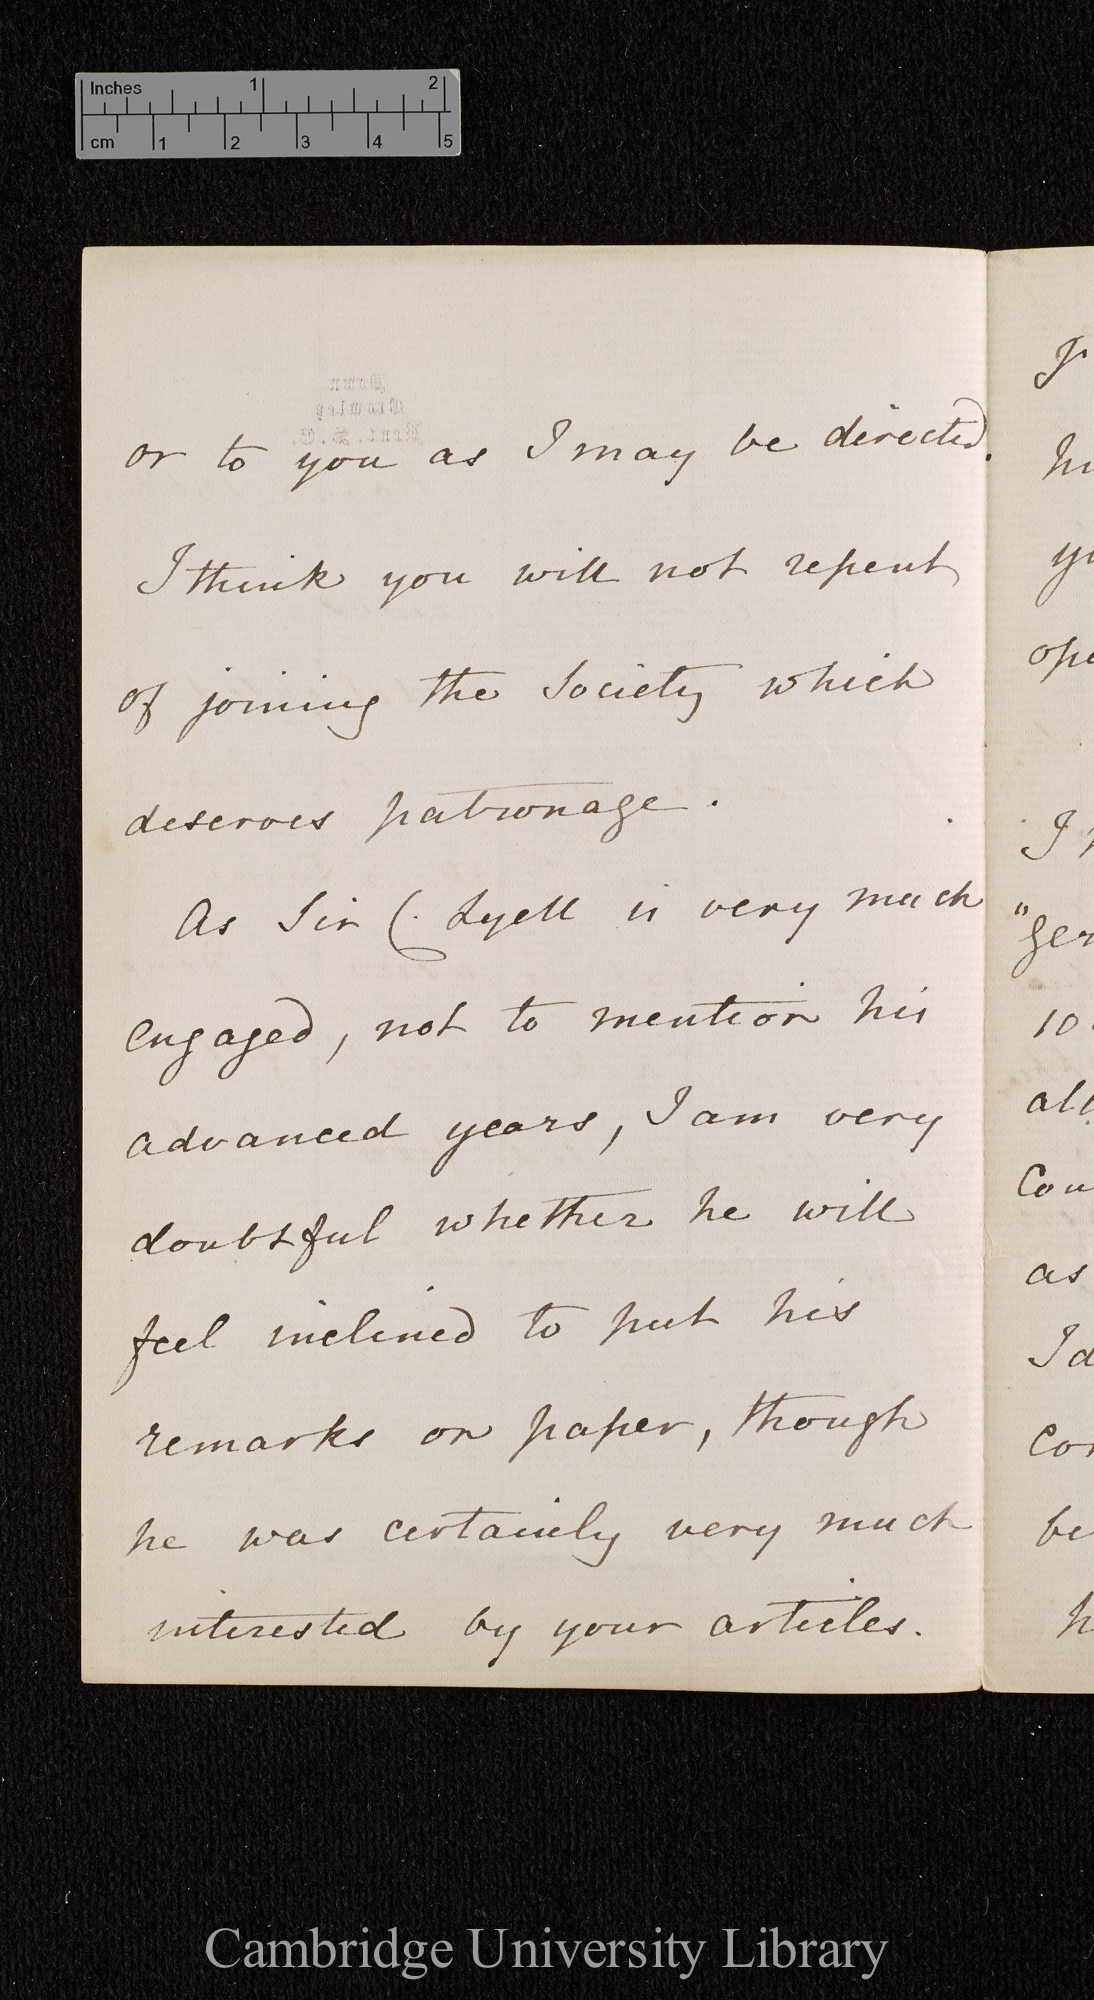 Inches 1 2
cm 1 2 3 4 5
Down
Bromley
Kent. S.E.
or to you as I may be directed.
I think you will not repent
of joining the Society which
deserves patronage.
As Sir C. Lyell is very much
engaged, not to mention his
advanced years, I am very
doubtful whether he will
feel inclined to put his
remarks on paper, though
he was certainly very much
interested by your articles.
10
as
be
Cambridge University Library